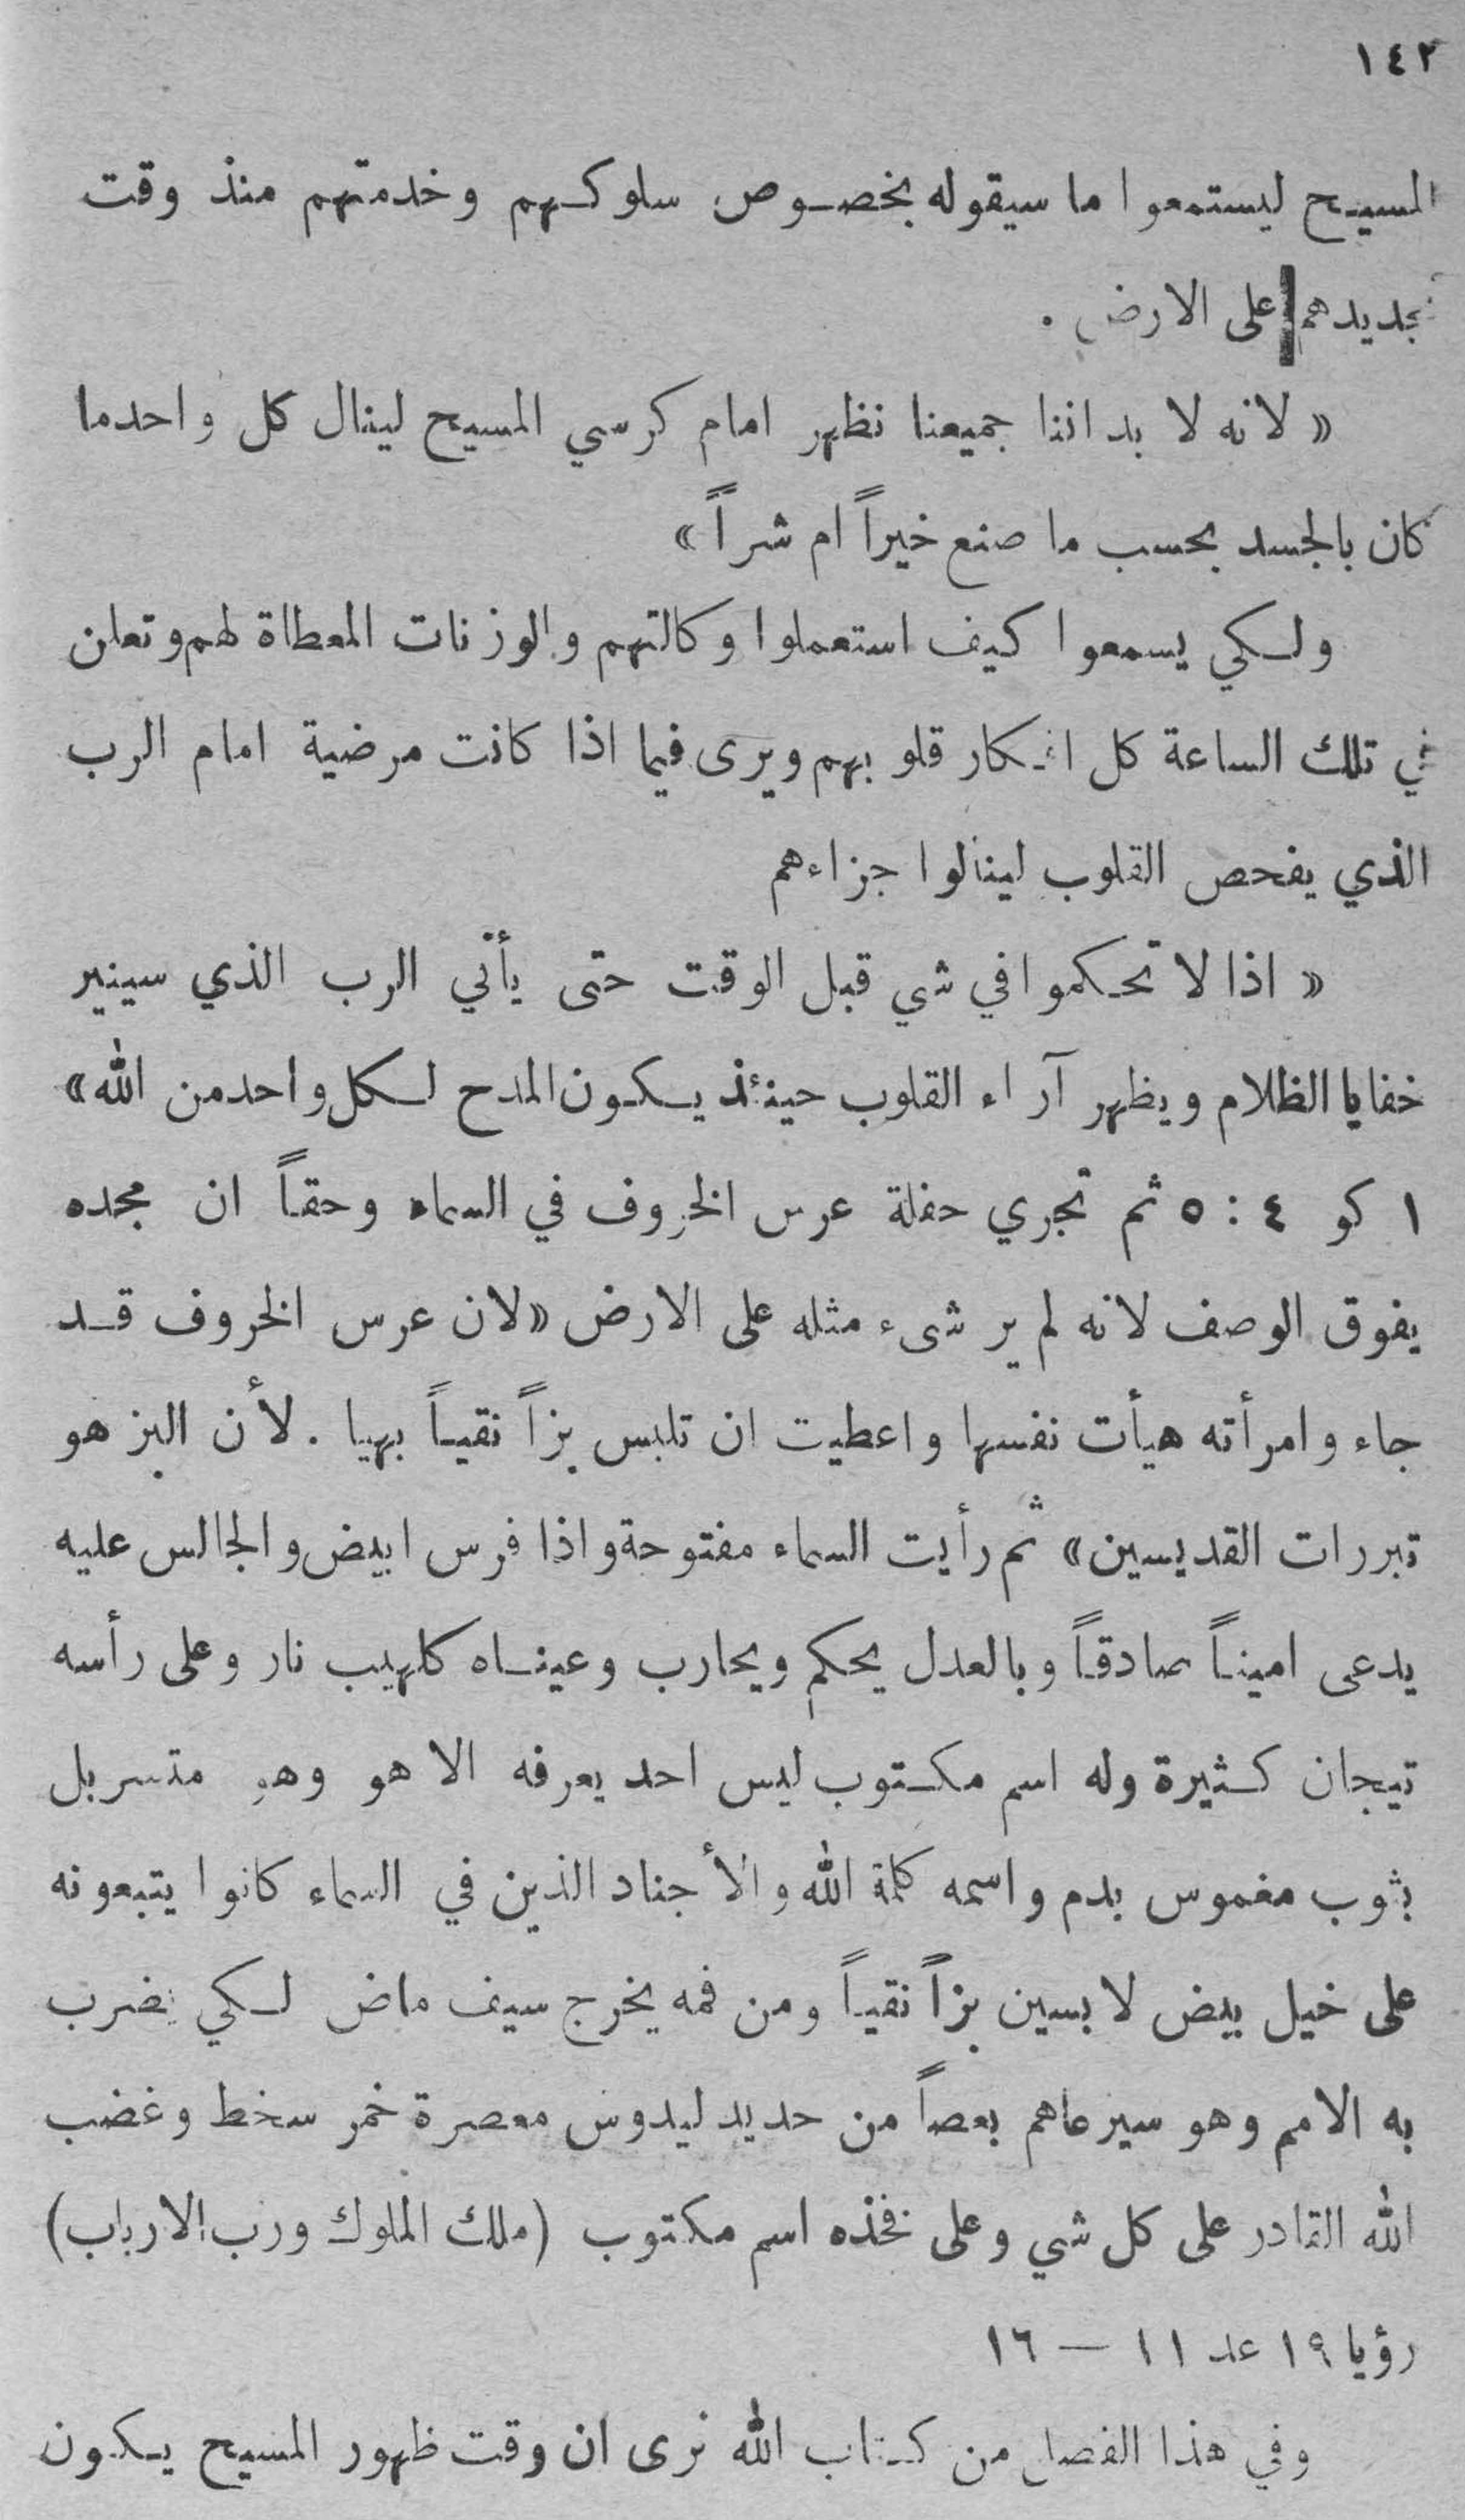 ١٤٢
المسيح ليستمعوا ما سيقوله بخصوص سلوكهم وخدمتهم منذ وقت
تجديدهم على الارض .
« لانه لا بد اننا جميعنا نظهر امام كرسي المسيح لينال كل واحدما
كان بالجسد بحسب ما صنع خيراً ام شراً »
ولكي يسمعوا كيف استعملوا وكالتهم والوزنات المعطاة لهم وتعلن
في تلك الساعة كل افكار قلوبهم ويرى فيما اذا كانت مرضية امام الرب
الذي يفحص القلوب لينالوا جزاءهم
« اذا لا تحكموا في شي قبل الوقت حتى يأتي الرب الذي سينير
خفايا الظلام ويظهر آراء القلوب حينئذ يكون المدح لكل واحد من الله »
١ كو ٤ : ٥ ثم تجري حفلة عرس الخروف في السماء وحقاً ان مجده
يفوق الوصف لانه لم ير شىء مثله على الارض « لان عرس الخروف قد
جاء وامرأته هيأت نفسها واعطيت ان تلبس بزاً نقياً بهيا . لأن البز هو
تبررات القديسين » ثم رأيت السماء مفتوحة واذا فرس ابيض والجالس عليه
يدعى اميناً صادقاً وبالعدل يحكم ويحارب وعيناه كلهيب نار وعلى رأسه
تيجان كثيرة وله اسم مكتوب ليس احد يعرفه الا هو وهو متسربل
بثوب مغموس بدم واسمه كلمة الله والأجناد الذين في السماء كانوا يتبعونه
على خيل بيض لابسين بزاً نقياً ومن فمه يخرج سيف ماض لكي يضرب
به الامم وهو سيرعاهم بعصاً من حديد ليدوس معصرة خمر سخط وغضب
الله القادر على كل شي وعلى فخذه اسم مكتوب (ملك الملوك ورب الارباب)
رؤيا ١٩ عد ١١ — ١٦
وفي هذا الفصل من كتاب الله نرى ان وقت ظهور المسيح يكون